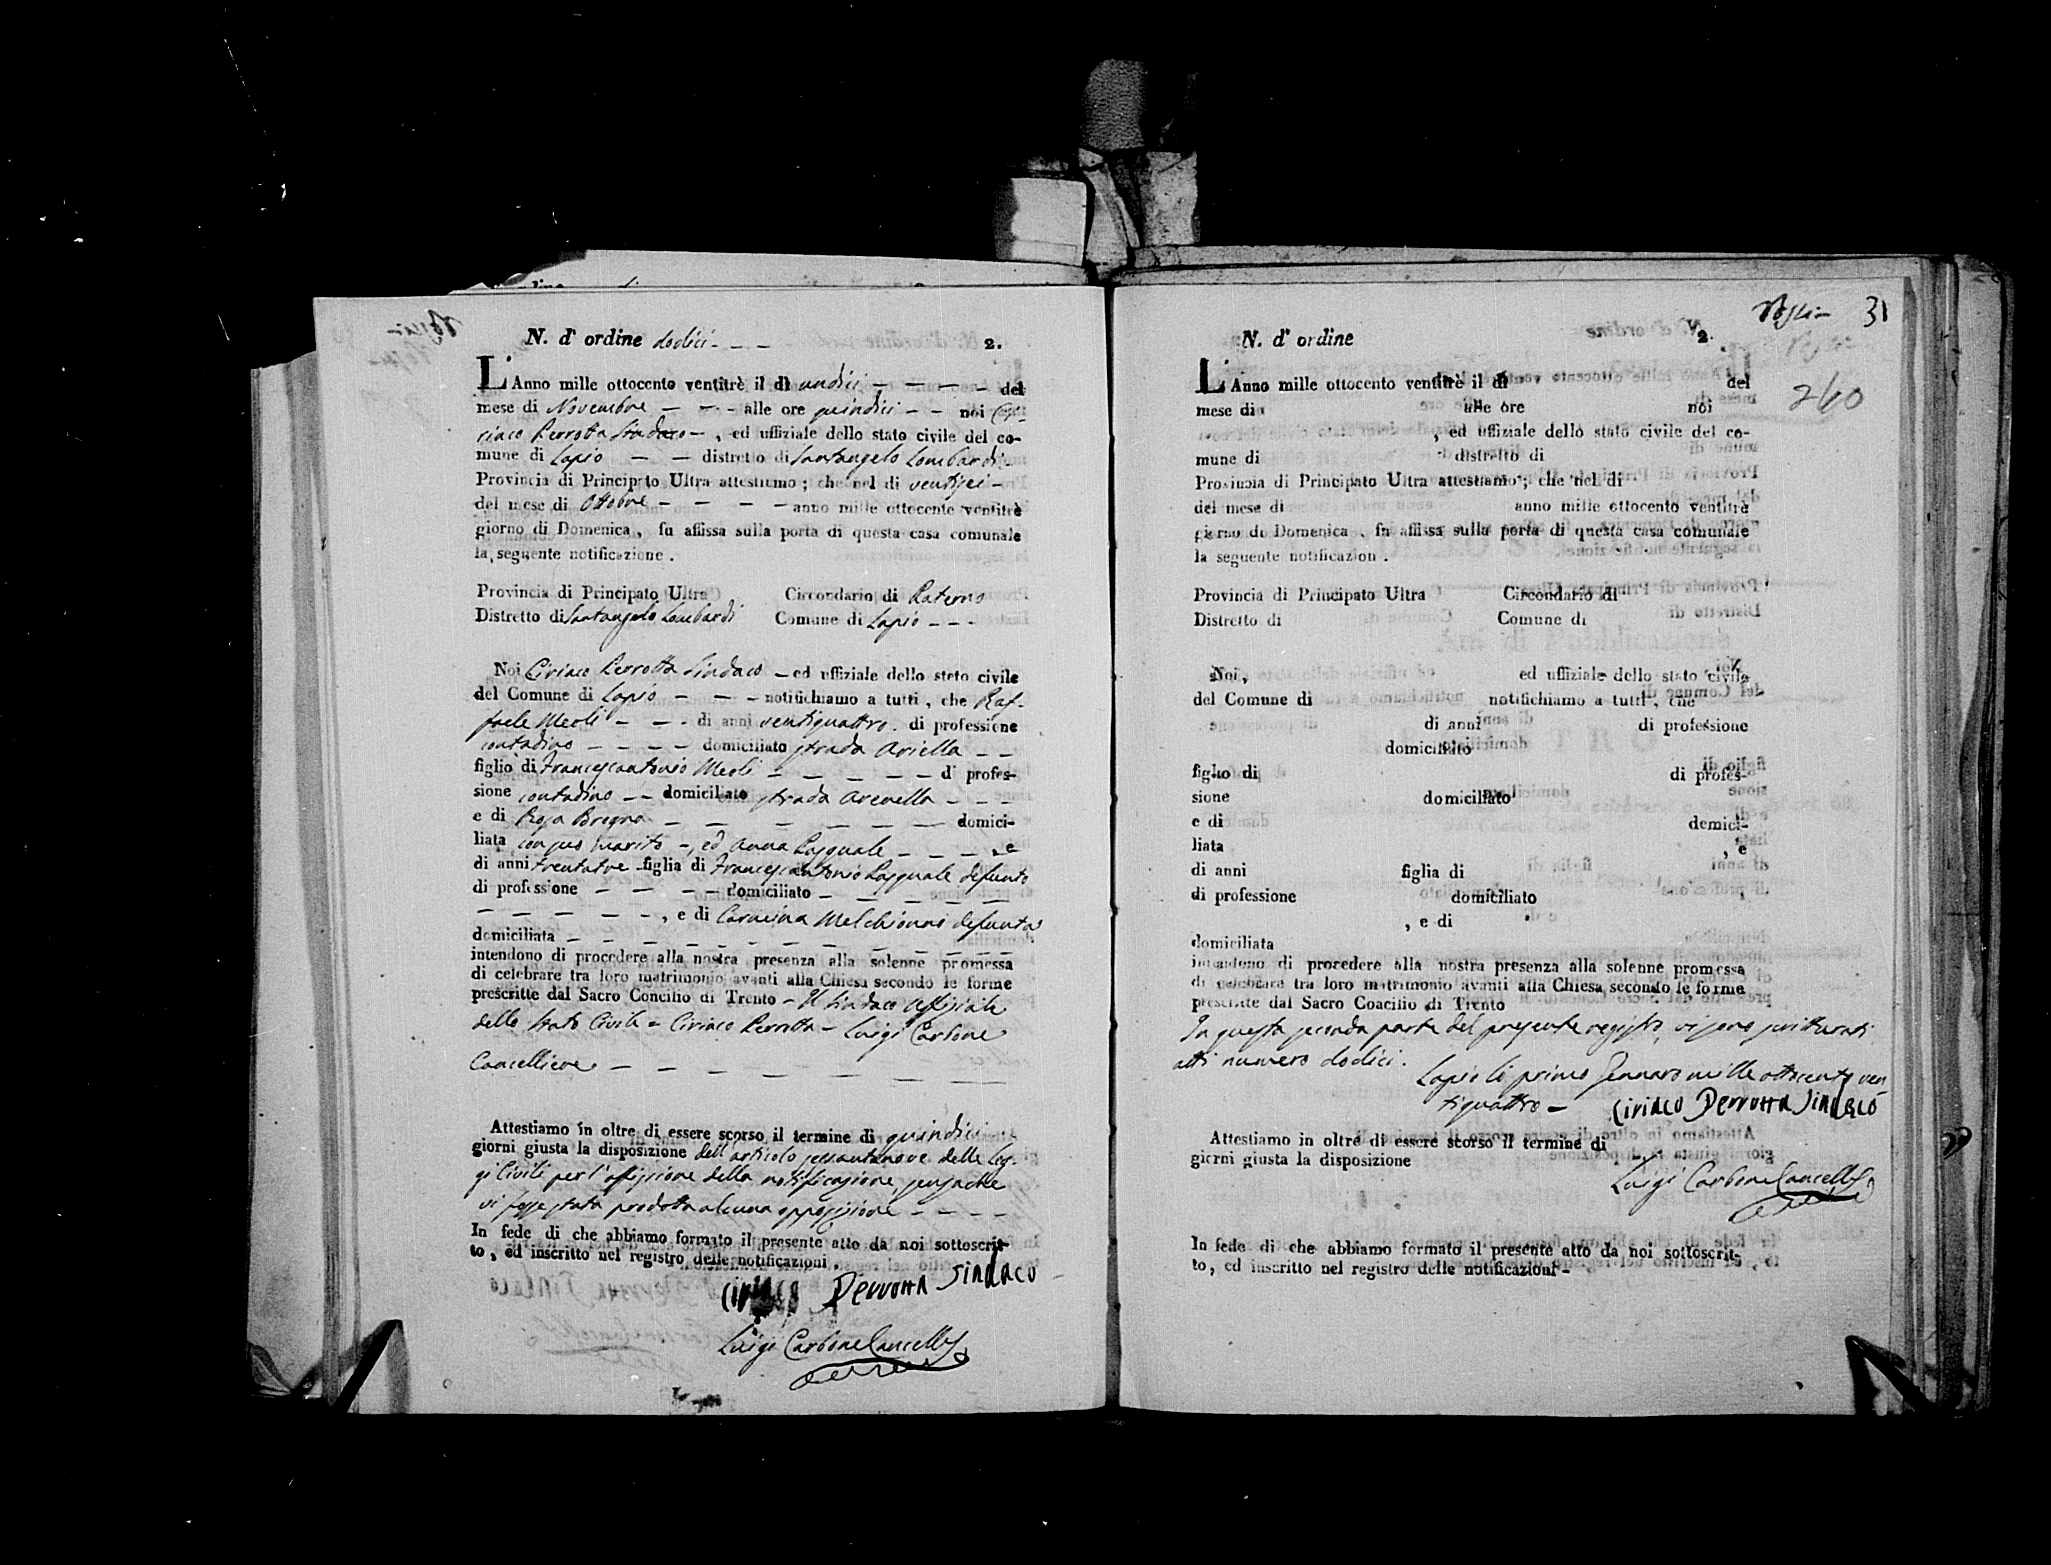 N. d' ordine dodici - - - 2.
L'Anno mille ottocento ventitrè il dì undici - - - - del
mese di Novembre - - - alle ore quindici - - noi Ci-
riaco Perrotta Sindaco -, ed uffiziale dello stato civile del co-
mune di Lapio - - distretto di Santangelo Lombardi -
Provincia di Principato Ultra attestiamo ; che nel di ventisei -
del mese di Ottobre - - - - anno mille ottocento ventitrè
giorno di Domenica , fu affissa sulla porta di questa casa comunale
la seguente notificazione .
Provincia di Principato Ultra Circondario di Paterno
Distretto di Santangelo Lombardi Comune di Lapio - - -
Noi Ciriaco Perrotta Sindaco - ed uffiziale dello stato civile
del Comune di Lapio - - - notifichiamo a tutti , che Raf-
faele Meoli - - - di anni ventiquattro . di professione
contadino - - - - domiciliato strada Ariella - -
figlio di Francescantonio Meoli - - - - - di profes-
sione contadino - - domiciliato strada Arenella - - -
e di Rosa Bregna - - - - - - - domici-
liata con suo marito -, ed Anna Pasquale - - - -, e
di anni trentatre figlia di Francescantonio Pasquale defunto
di professione - - - - domiciliato - - - - - -
- - - - - -, e di Carmina Melchionno defunta
domiciliata - - - - - - - - - - -
intendono di procedere alla nostra presenza alla solenne promessa
di celebrare tra loro matrimonio avanti alla Chiesa secondo le forme
prescritte dal Sacro Concilio di Trento - Il Sindaco Uffiziale
dello Stato Civile = Ciriaco Perrotta - Luigi Carbone
Cancelliere - - - - - - - -
Attestiamo in oltre di essere scorso il termine di quindici
giorni giusta la disposizione dell'articolo sessantanove delle Leg-
gi Civili per l'affissione della notificazione, senzache
vi fosse stata prodotta alcuna opposizione - - - -
In fede di che abbiamo formato il presente atto da noi sottoscrit-
to , ed inscritto nel registro delle notificazioni .
Ciriaco Perrotta Sindaco
Luigi Carbone Cancell
31
N. d' ordine 2.
260
L'Anno mille ottocento ventitrè il di del
mese di alle ore noi
, ed uffiziale dello stato civile del co-
mune di distretto di
Provincia di Principato Ultra attestiamo ; che nel di
del mese di anno mille ottocento ventitrè
giorno di Domenica , fu affissa sulla porta di questa casa comunale
la seguente notificazion .
Provincia di Principato Ultra Circondario di
Distretto di Comune di
Noi , ed uffiziale dello stato civile
del Comune di notifichiamo a tutti , che
di anni di professione
domiciliato
figlio di di profes-
sione domiciliato
e di domici-
liata , e
di anni figlia di
di professione domiciliato
, e di
domiciliata
intendono di procedere alla nostra presenza alla solenne promessa
di celebrare tra loro matrimonio avanti alla Chiesa secondo le forme
prescritte dal Sacro Concilio di Trento
In questa seconda parte del presente registro, vi sono scritturati
atti numero dodici .
Lapio lì primo Gennaro mille ottocento ven
tiquattro - Ciriaco Perrotta Sindaco
Attestiamo in oltre di essere scorso il termine di
giorni giusta la disposizione
Luigi Carbone Cancell
In fede di che abbiamo formato il presente atto da noi sottoscrit-
to, ed inscritto nel registro delle notificazioni -